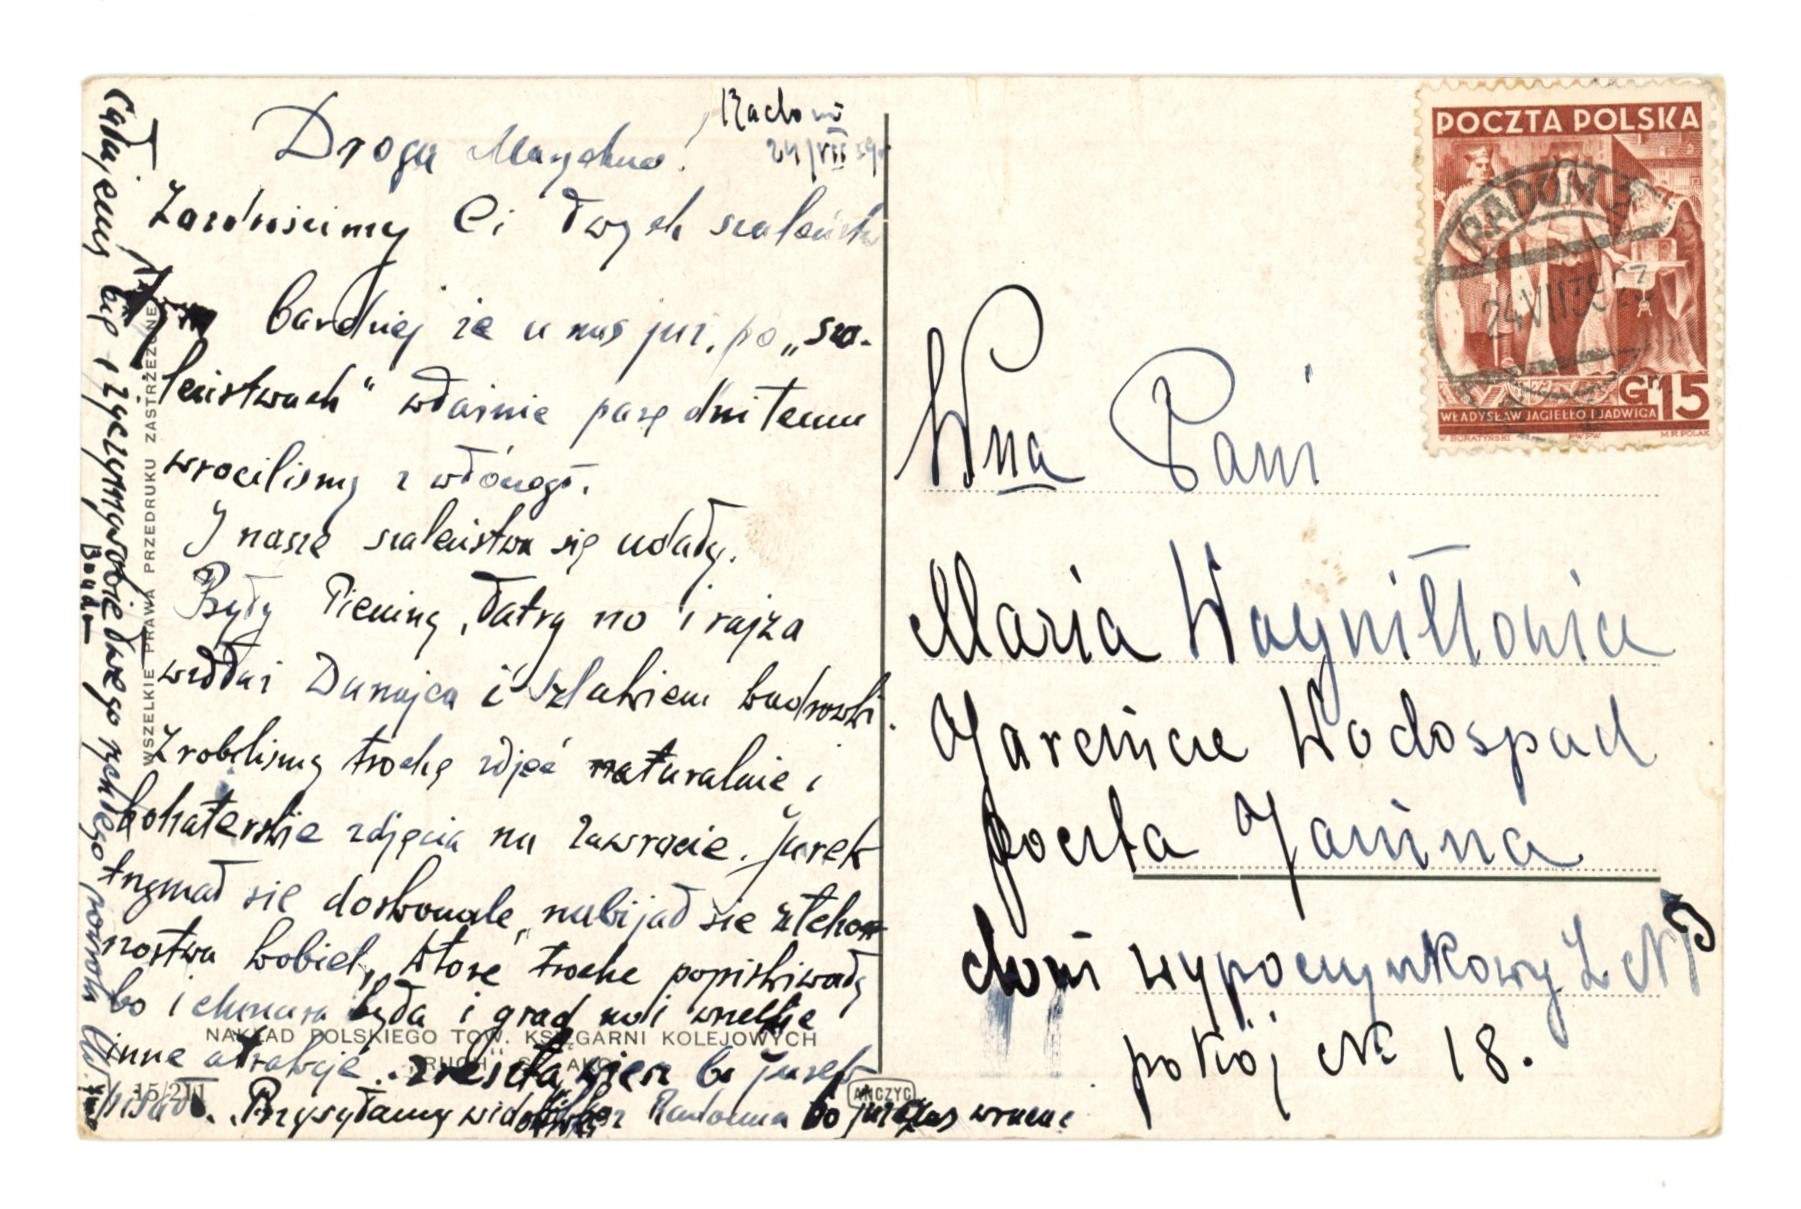 Radom
24/VII 39.
Droga Marychno!
Zazdrościmy Ci Twych szaleństw
tym bardziej że u nas już po „sza-
leństwach" właśnie parę dni temu
wróciliśmy z włóczęgi.
I nasze szaleństwa się udały.
Były Pieniny, Tatry no i rajza
wzdłuż Dunajca i szlakiem
Zrobiliśmy trochę zdjęć naturalnie i
bohaterskie zdjęcia na Zawracie. Jurek
trzymał się doskonale, nabijał się z tchó-
rzostwa kobiet, które trochę popiskiwały
bo i chmura była i grad no i wszelkie
inne atrakcje. zresztą wiesz bo Jurek
pisał. Przysyłamy z Radomia bo już czas wracać
Całujemy Cię i życzymy sobie Twego rychłego powrotu
Bogda
WSZELKIE PRAWA PRZEDRUKU ZASTRZEŻONE
NAKŁAD POLSKIEGO TOW. KSIĘGARNI KOLEJOWYCH
„RUCH" S. AKC.
15/2111
AKCZYC
POCZTA POLSKA
WŁADYSŁAW JAGIEŁŁO I JADWIGA
Gr 15
W. BORATYŃSKI PWPW M.R. POLAK
RADOM 2
24 VII 39
Wna Pani
Maria Wagniłłowicz
Jaremcze Wodospad
poczta Janina
dom wypoczynkowy Z.N.P
pokój № 18.